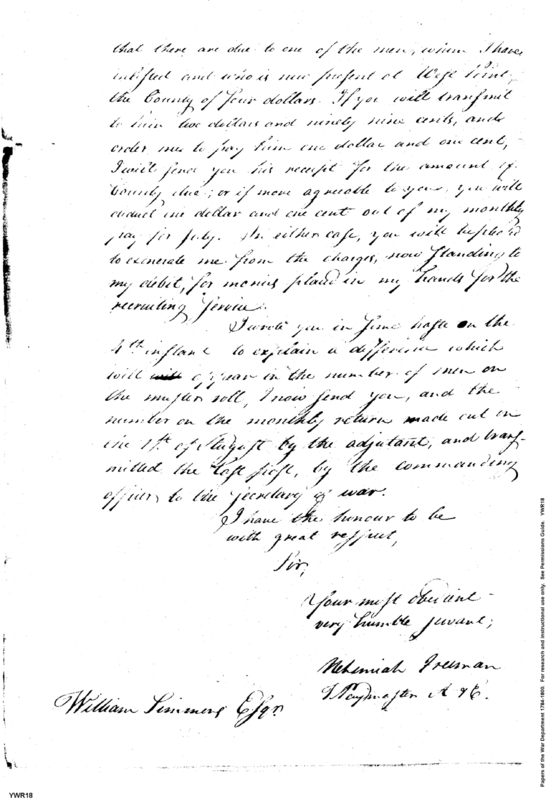 that there are due to one of the men, whom I have
inlisted and who is now present at West Point,
the bounty of four dollars. If you will transmit
to him two dollars and ninety nine cents, and
order me to pay him one dollar and one cent,
I will send you his receipt for the amount of
bounty due; or if more agreable to you, you will
deduct one dollar and one cent out of my monthly
pay for July. In either case, you will be pleas'd
to exonerate me from the charges, now standing to
my debit, for monies placed in my hands for the
recruiting service.
I wrote you in some haste on the
4th instant to explain a difference which
will appear in the number of men on
the muster roll, I now send you, and the
number on the monthly return made out on
the 1st of August by the adjutant, and trans-
mitted the last post, by the commanding
officer, to the secretary of war.
I have the honour to be
with great respect,
Sir,
Your most obedient
very humble servant,
Nehemiah Freeman
Paymaster A & E.
William Simmons Esqr.
YWR18
Papers of the War Department 1784-1800. For research and instructional use only. See Permissions Guide. YWR18